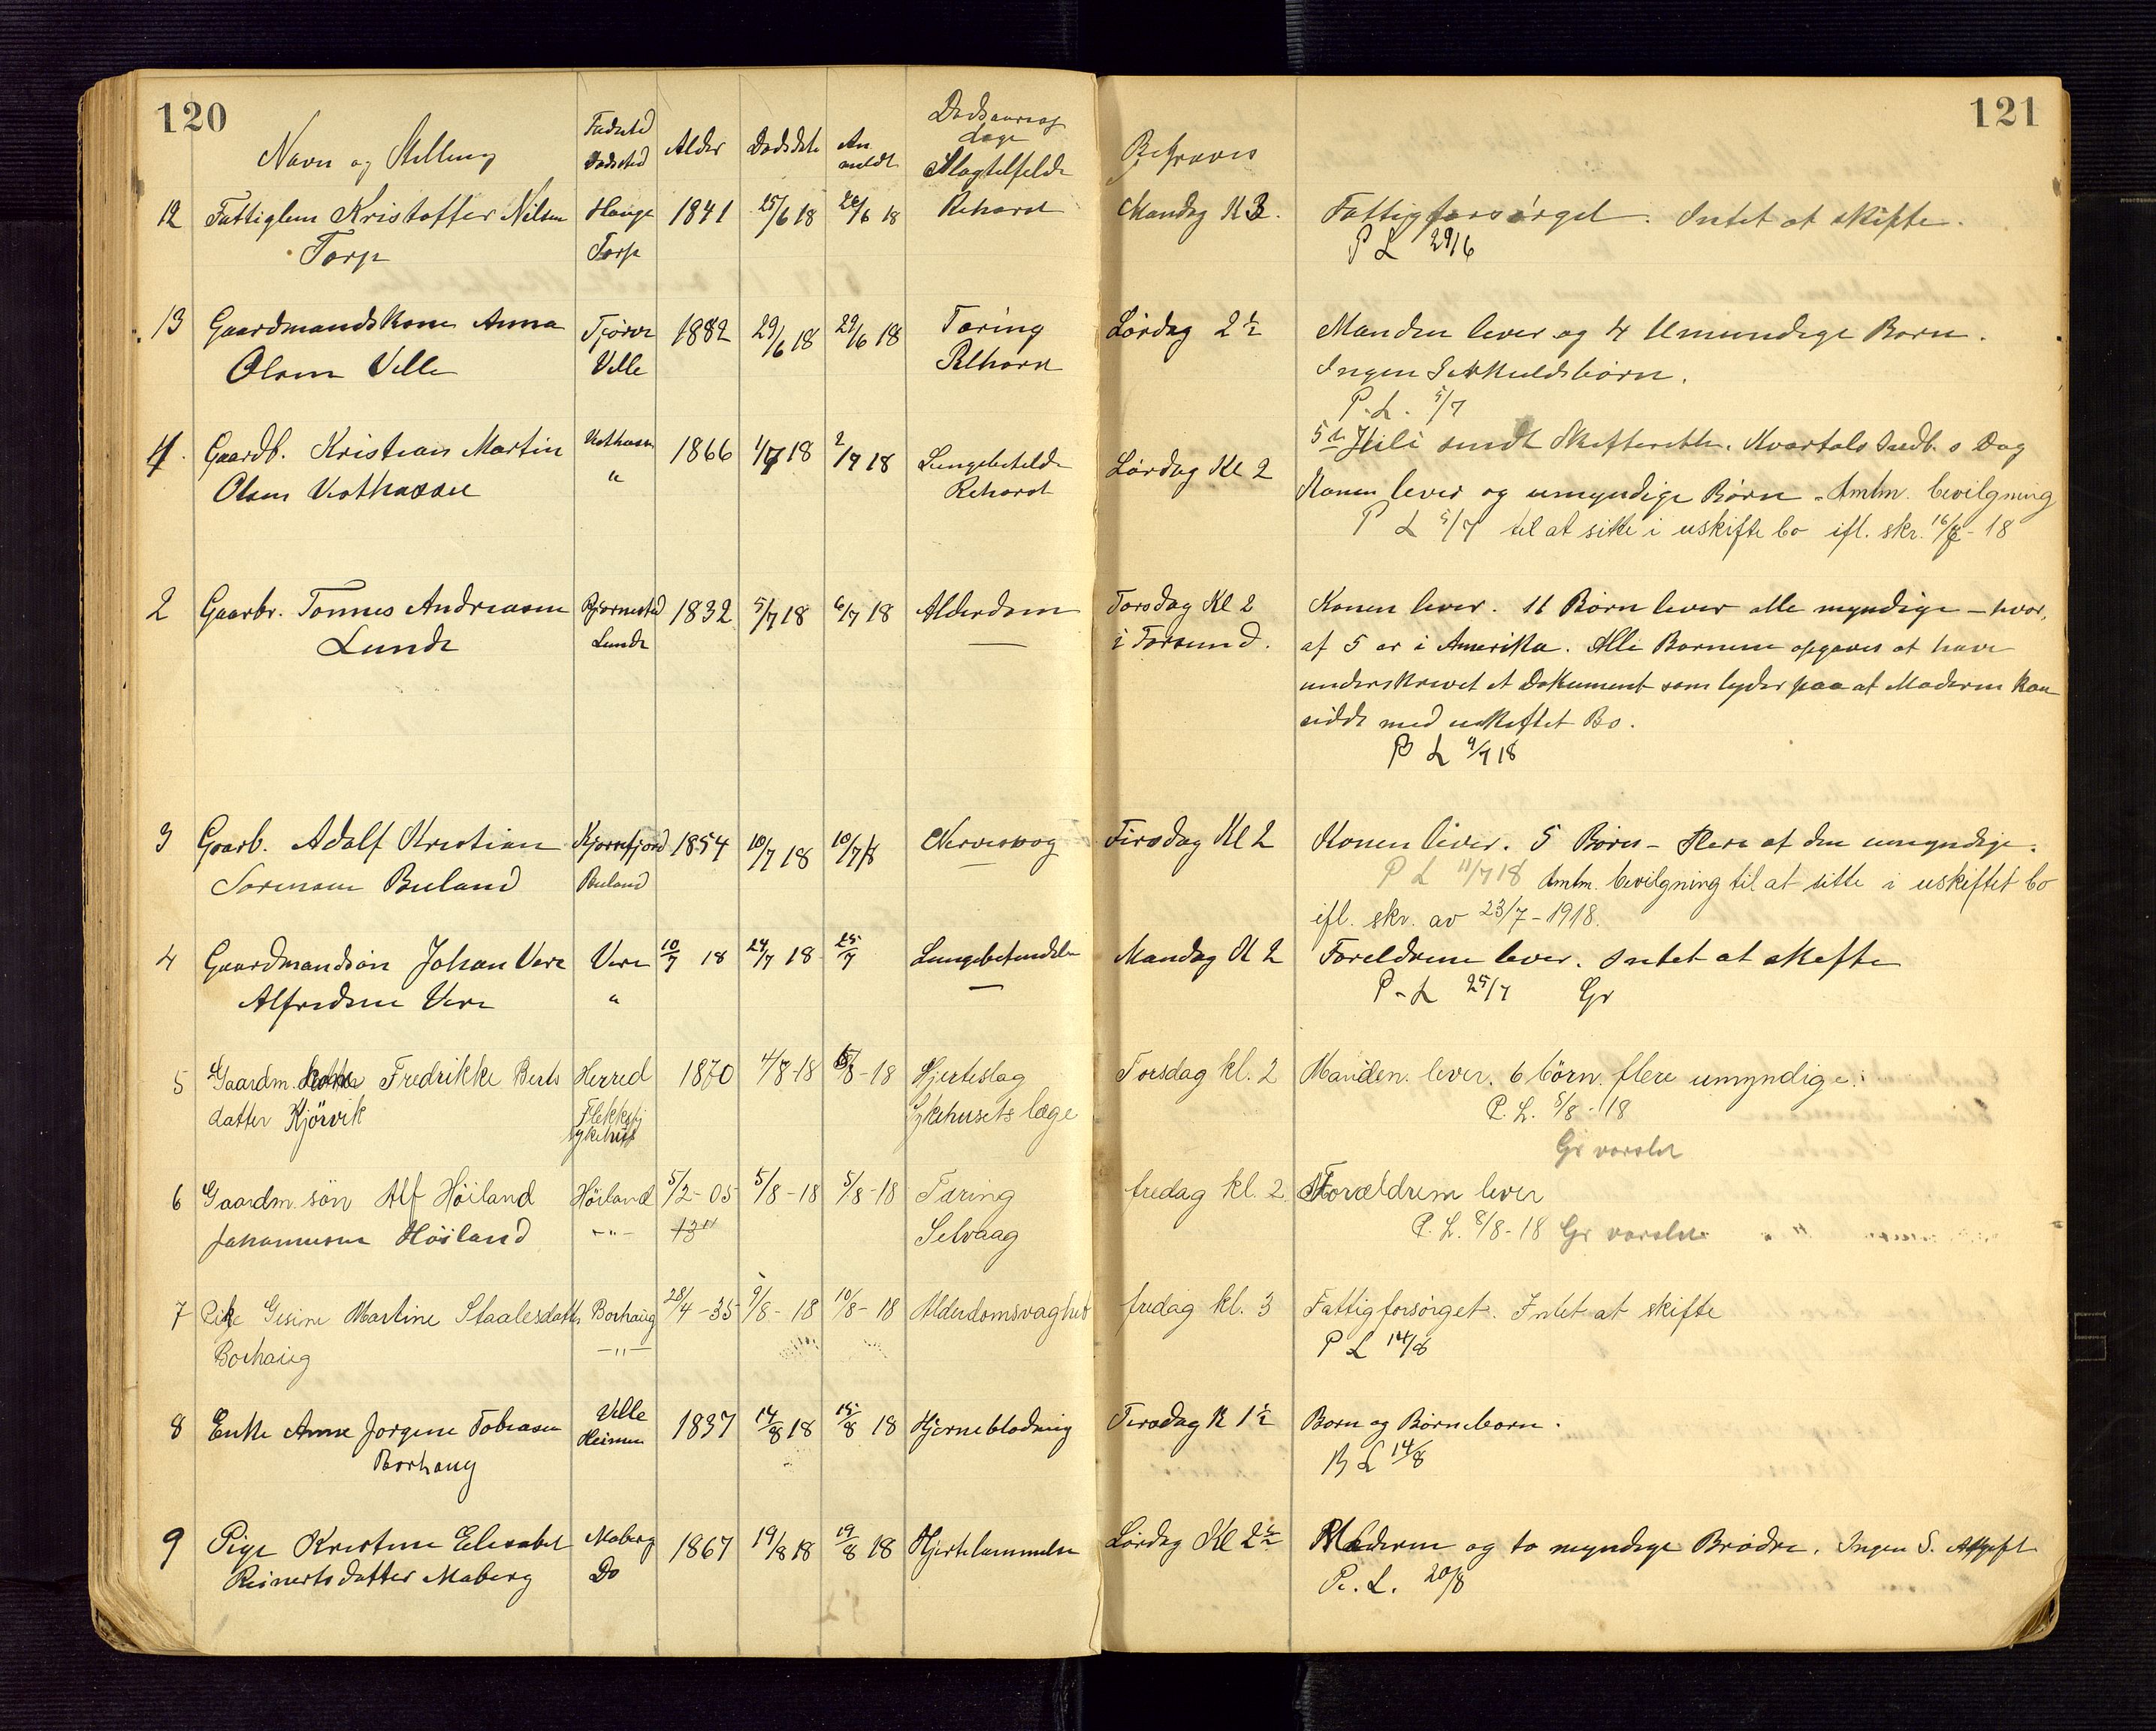 120
121
Navn og Stilling Fødested Dødssted Alder Dødsdato An meldt Dødsaarsag Læge Slagtilfælde Begraves
12 Fattiglem Kristoffer Nilsen Hauge 1841 25/6 18 26/6 18 Rehord Mandag Kl 3. Fattigforsørget. Intet at skifte.
Torp Torp P L 29/6
13 Gaardmandskone Anna Tjørve 1882 29/6 18 29/6 18 Tæring Lørdag 2½ Manden lever og 4 Umyndige Børn.
Olsen Velle Velle Rehord Ingen Særkuldsbørn.
P. L. 5/7
5te Juli sendt Skifteretten. Kvartals Indb. s Dag
1. Gaardb. Kristian Martin Vesthassel 1866 1/7 18 2/7 18 Lungebetelde Lørdag Kl 2 Konen lever og umyndige Børn. Amtm. bevilgning
Olsen Vesthassel " Rehord P L 5/7 til at sitte i uskifte bo ifl. skr. 16/8-18
2 Gaarbr. Tønnes Andreasen Bjørnested 1832 5/7 18 6/7 18 Alderdom Torsdag Kl 2 Konen lever. 11 Børn lever alle myndige – hvor,
Lunde Lunde — i Farsund. af 5 er i Amerika. Alle Børnene opgaves at have
underskrevet et Dokument som lyder paa at Moderen kan
sidde med uskiftet Bo.
P L 9/7 18
3 Gaarb. Adolf Kristian Kjørrefjord 1854 10/7 18 10/7 18 Nervesvag Tirsdag Kl 2 Konen lever. 5 Børn – flere af dem umyndige.
Sørensen Buland Buland — P L 11/7 18 Amtm. bevilgning til at sitte i uskiftet bo
ifl. skr. av 23/7-1918.
4 Gaardmandsøn Johan Vere Vere 10/7 18 24/7 18 25/7 Lungebetændelse Mandag Kl 2 Foreldrene lever. Intet at skifte
Alfredsen Vere " — P-L 25/7 Gr
5 Gaardm. Fredrikke Berts Herred 1870 4/8-18 5/8-18 Hjerteslag Torsdag kl. 2 Manden lever. 6 børn. flere umyndige.
datter Kjörvik Flekkefj sykehus Sykehusets læge P. L. 5/8-18
Gr varslet
6 Gaardm. søn Alf Höiland Höiland 5/2-05 5/8-18 5/8-18 Tæring fredag kl. 2. Forældrene lever
Johannesen Höiland -"- Selvaag P. L. 8/8-18 Gr varslet
7 Pike Gesine Martine Staalesdatter Borhaug 28/4-35 9/8-18 10/8-18 Alderdomsvaghet fredag kl. 3 Fattigforsørget. Intet at skifte
Borhaug -"- P L 14/8
8 Enke Anne Jørgine Tobiasen Velle 1837 14/8 18 15/8 18 Hjerneblødning Tirsdag Kl 1½ Børn og Børnebørn.
Borhaug Heimen P L 14/8
9 Pige Kristine Elisabet Maberg 1867 19/8 18 19/8 18 Hjertelammelse Lørdag Kl 2½ Moderen og to myndige Brødre. Ingen S. Afgift
Reinertsdatter Maberg Do P. L. 20/8